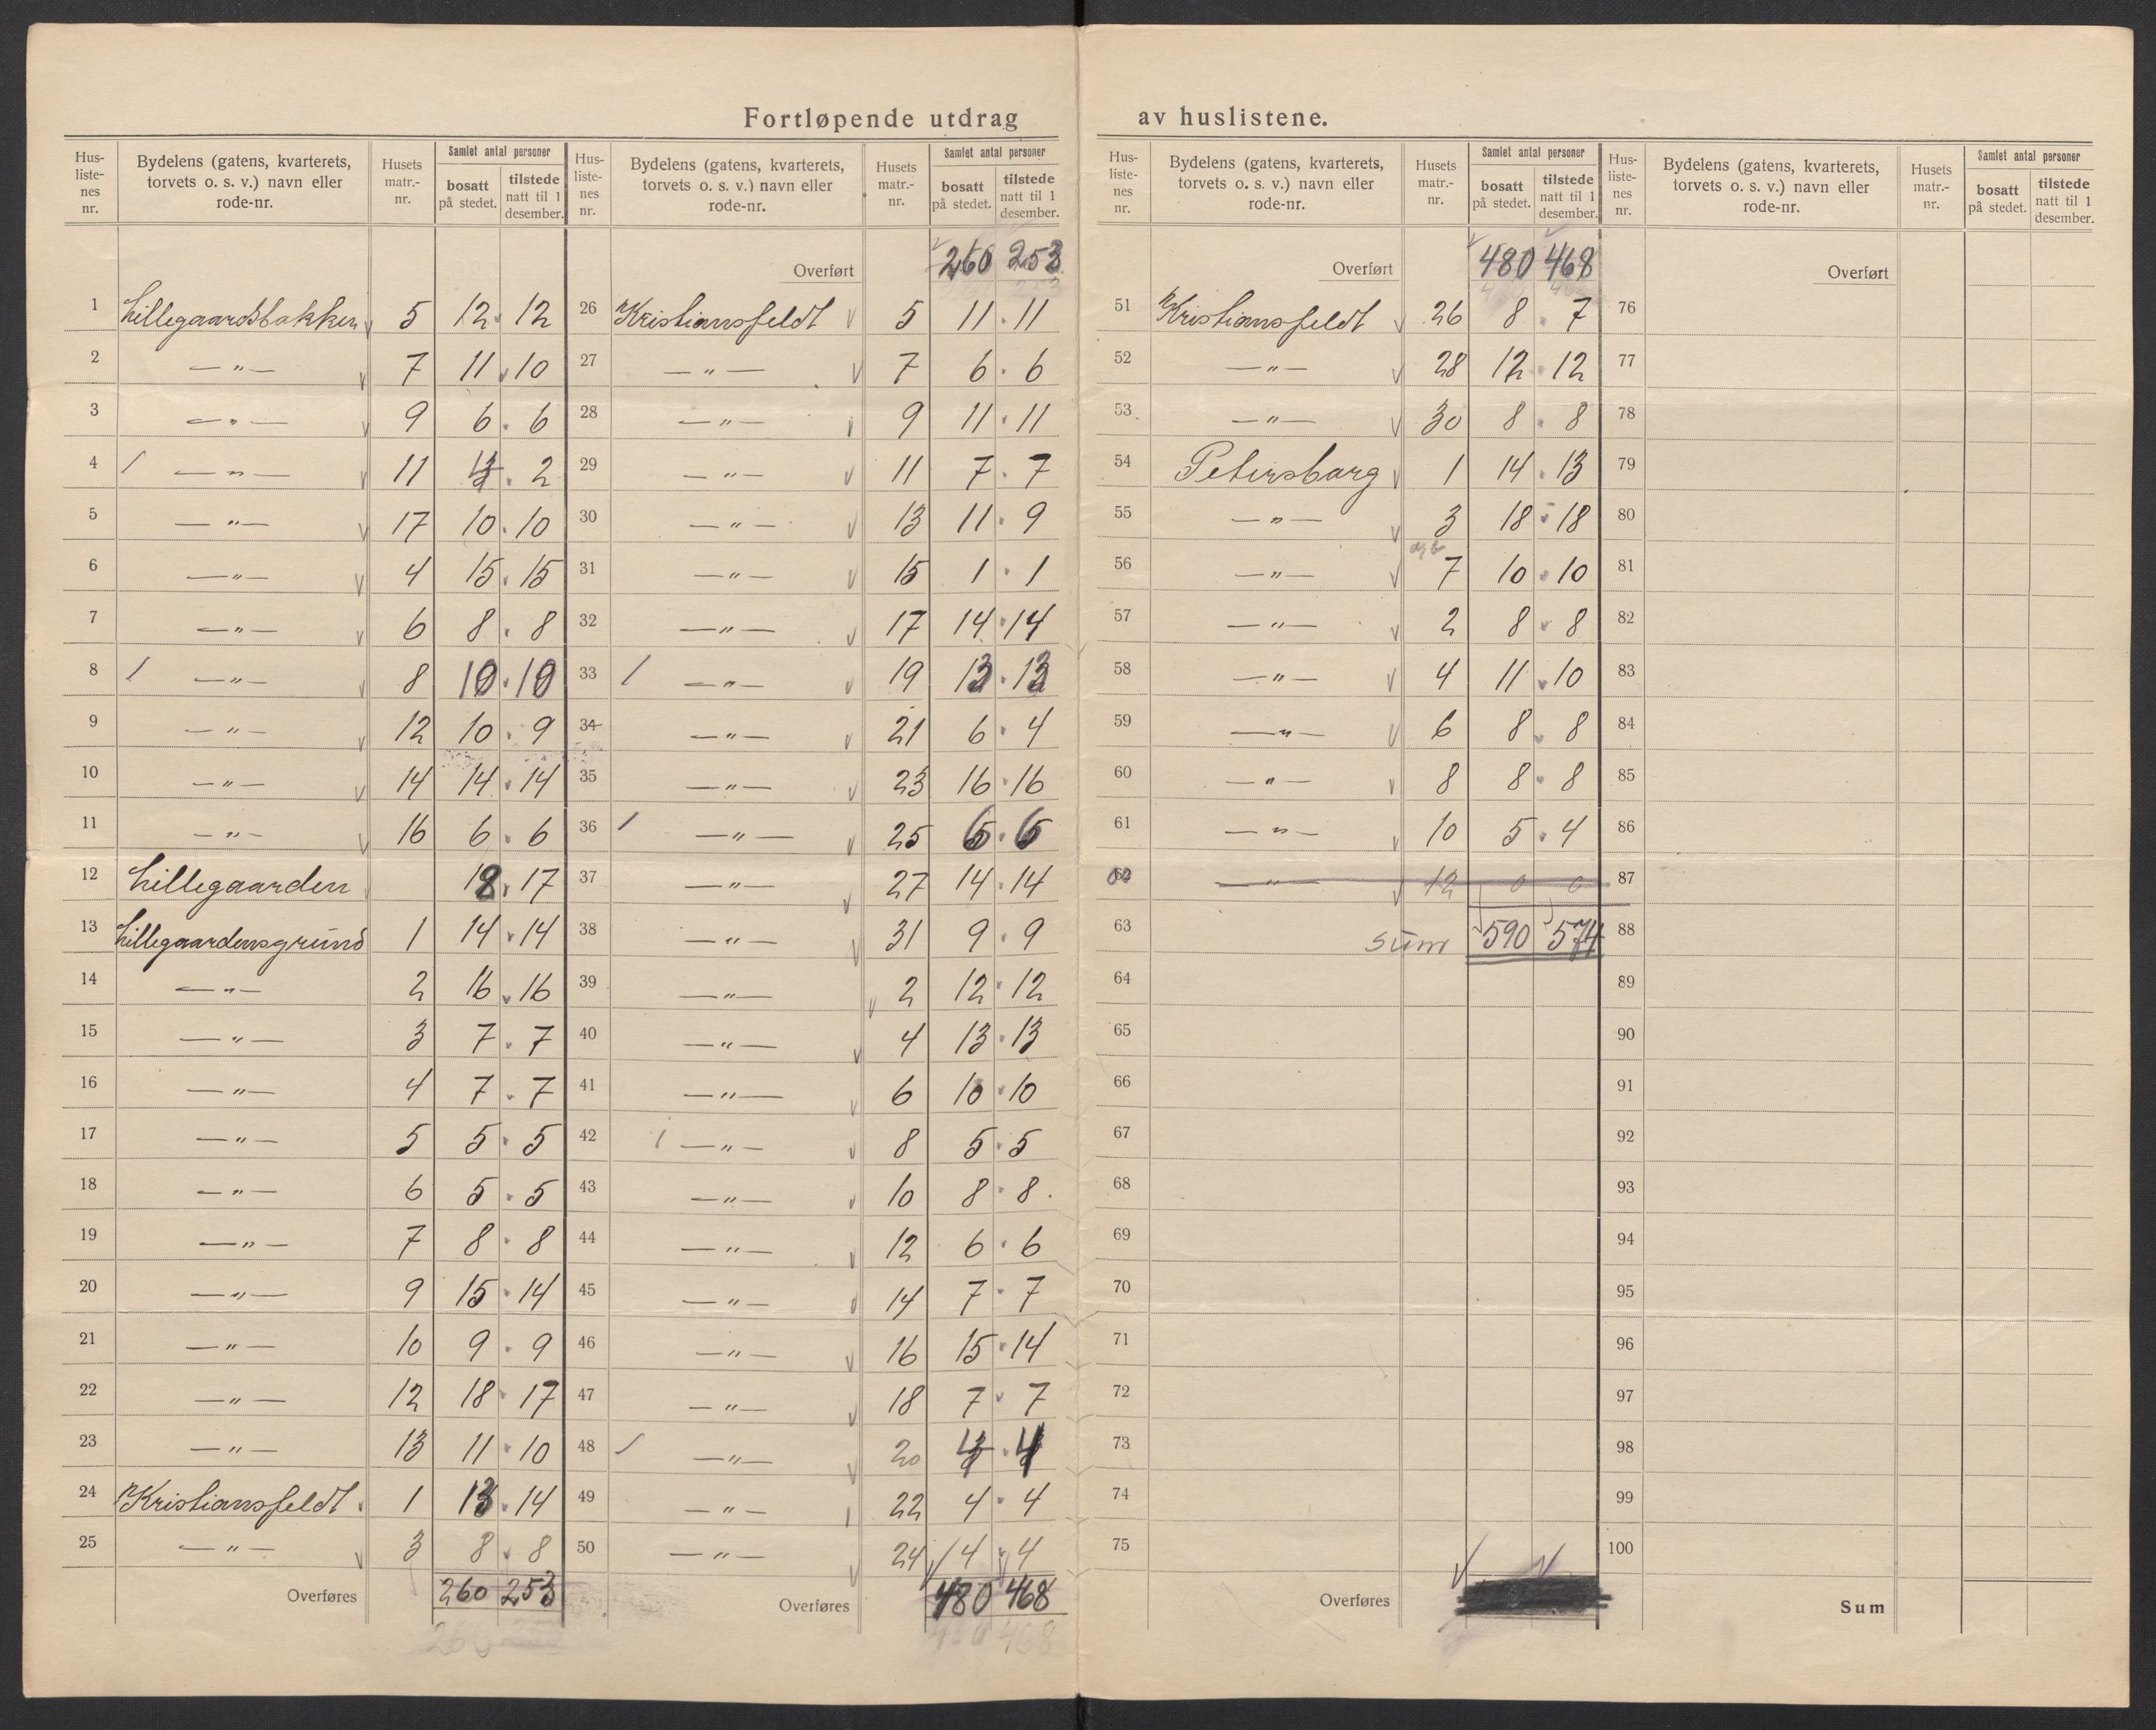 Fortløpende utdrag av huslistene.
Hus-listenes nr. | Bydelens (gatens, kvarterets, torvets o. s. v.) navn eller rode-nr. | Husets matr.-nr. | Samlet antal personer | bosatt på stedet. | tilstede natt til 1 desember.
1 Lillegaardsbakken 5 12 12
2 — " — 7 11 10
3 — " — 9 6 6
4 / — " — 11 4 2
5 — " — 17 10 10
6 — " — 4 15 15
7 — " — 6 8 8
8 / — " — 8 10 10
9 — " — 12 10 9
10 — " — 14 14 14
11 — " — 16 6 6
12 Lillegaarden 18 17
13 Lillegaardensgrund 1 14 14
14 — " — 2 16 16
15 — " — 3 7 7
16 — " — 4 7 7
17 — " — 5 5 5
18 — " — 6 5 5
19 — " — 7 8 8
20 — " — 9 15 14
21 — " — 10 9 9
22 — " — 12 18 17
23 — " — 13 11 10
24 Kristiansfeldt 1 13 14
25 — " — 3 8 8
Overføres 260 253
260 253
Hus-listenes nr. | Bydelens (gatens, kvarterets, torvets o. s. v.) navn eller rode-nr. | Husets matr.-nr. | Samlet antal personer | bosatt på stedet. | tilstede natt til 1 desember.
Overført 260 253
26 Kristiansfeldt 5 11 11
27 — " — 7 6 6
28 — " — 9 11 11
29 — " — 11 7 7
30 — " — 13 11 9
31 — " — 15 1 1
32 — " — 17 14 14
33 / — " — 19 13 13
34 — " — 21 6 4
35 — " — 23 16 16
36 / — " — 25 6 6
37 — " — 27 14 14
38 — " — 31 9 9
39 — " — 2 12 12
40 — " — 4 13 13
41 — " — 6 10 10
42 / — " — 8 5 5
43 — " — 10 8 8
44 — " — 12 6 6
45 — " — 14 7 7
46 — " — 16 15 14
47 — " — 18 7 7
48 / — " — 20 4 4
49 — " — 22 4 4
50 — " — 24 4 4
Overføres 480 468
480 468
Hus-listenes nr. | Bydelens (gatens, kvarterets, torvets o. s. v.) navn eller rode-nr. | Husets matr.-nr. | Samlet antal personer | bosatt på stedet. | tilstede natt til 1 desember.
Overført 480 468
51 Kristiansfeldt 26 8 7
52 — " — 28 12 12
53 — " — 30 8 8
54 Petersborg 1 14 13
55 — " — 3 18 18
56 — " — 7 10 10
57 — " — 2 8 8
58 — " — 4 11 10
59 — " — 6 8 8
60 — " — 8 8 8
61 — " — 10 5 4
62 — " — 12 0 0
63 Sum 590 574
64
65
66
67
68
69
70
71
72
73
74
75
Overføres
Hus-listenes nr. | Bydelens (gatens, kvarterets, torvets o. s. v.) navn eller rode-nr. | Husets matr.-nr. | Samlet antal personer | bosatt på stedet. | tilstede natt til 1 desember.
Overført
76
77
78
79
80
81
82
83
84
85
86
87
88
89
90
91
92
93
94
95
96
97
98
99
100
Sum